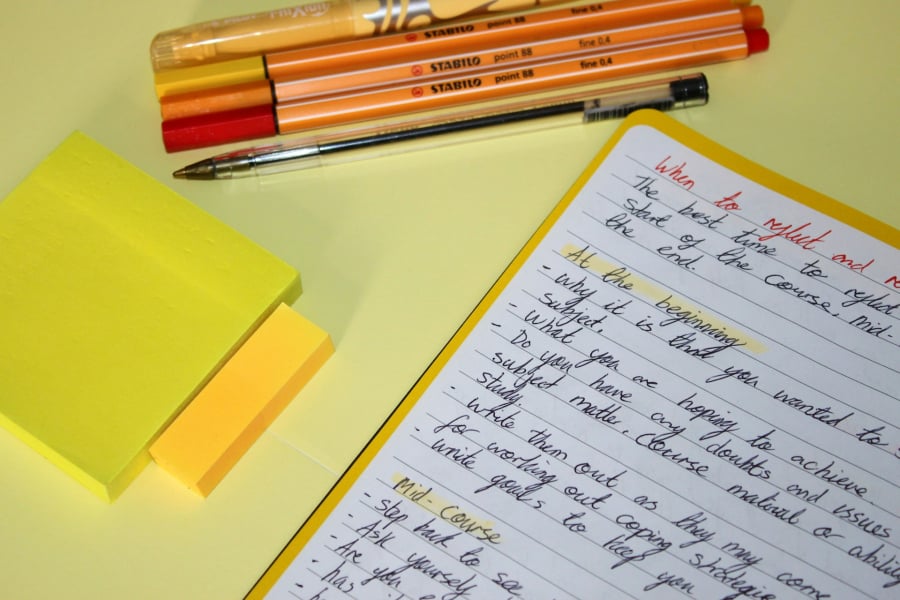 STABILO point 88 fine 0.4
STABILO point 88 fine 0.4
STABILO point 88 fine 0.4
When to reflect and
The best time to reflect
start of the course, mid-
the end.
At the beginning
- Why it is that you wanted to
subject.
- What you are hoping to achieve
- Do you have any doubts and issues
subject matter, course material or ability
study.
- Write them out as they may come
for working out coping strategie
- write goals to keep you
Mid-course
- Step back to see
- Ask yourself
- Are you
- has